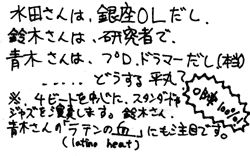 水田さんは、銀座OLだし、
鈴木さんは、研究者で、
青木さんは、プロ.ドラマーだし(本当)
......どうする平太?
※.4ビートを中心とした、スタンダード
ジャズをご演奏します。鈴木さん、
青木さんの「ラテンの血」にもご注目です。
(latino heat)
100%!